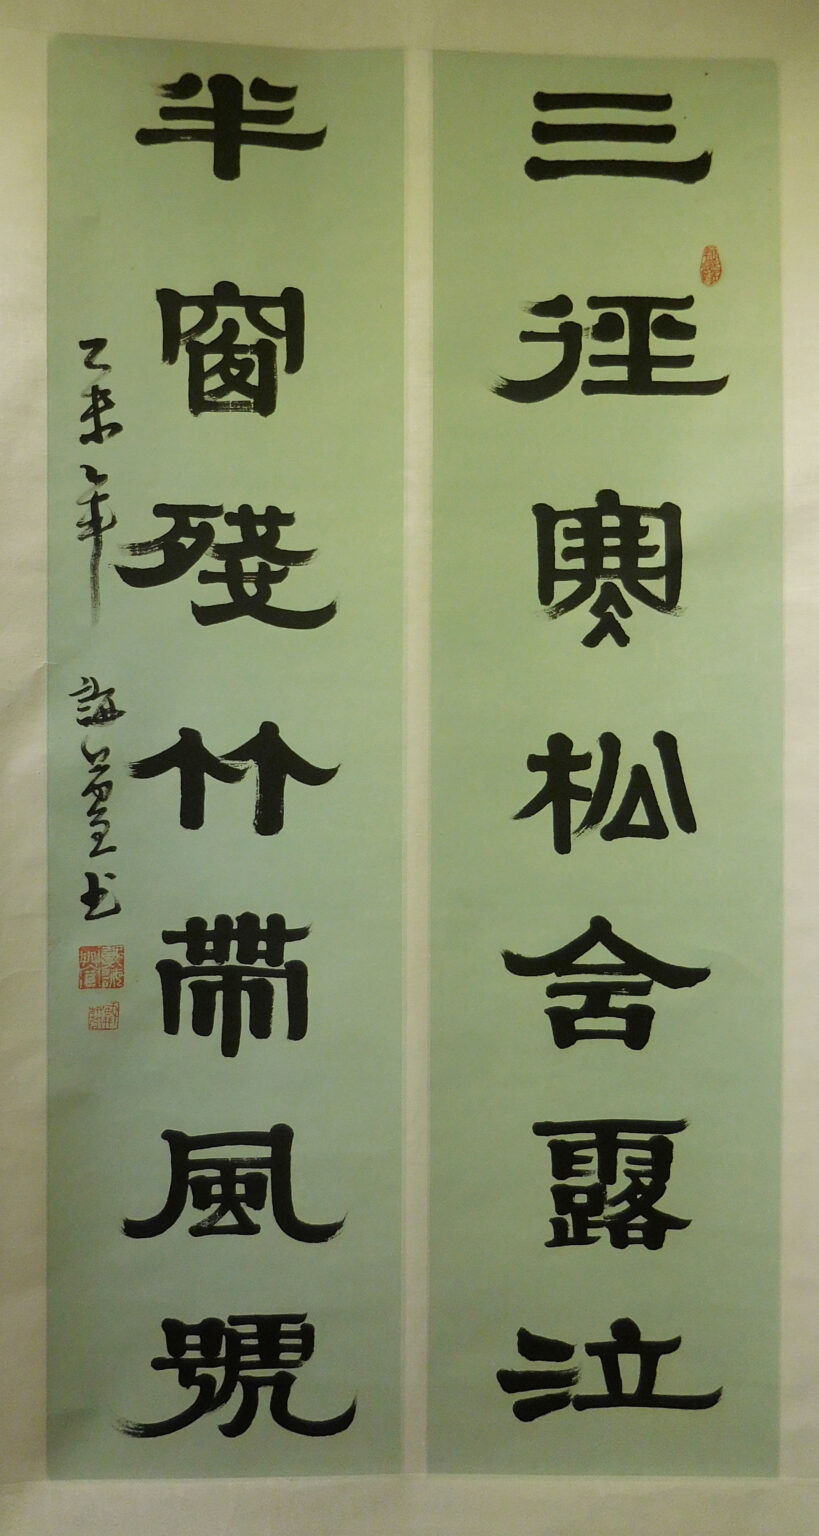 三徑寒松含露泣
半窗殘竹帶風號
乙未年
書